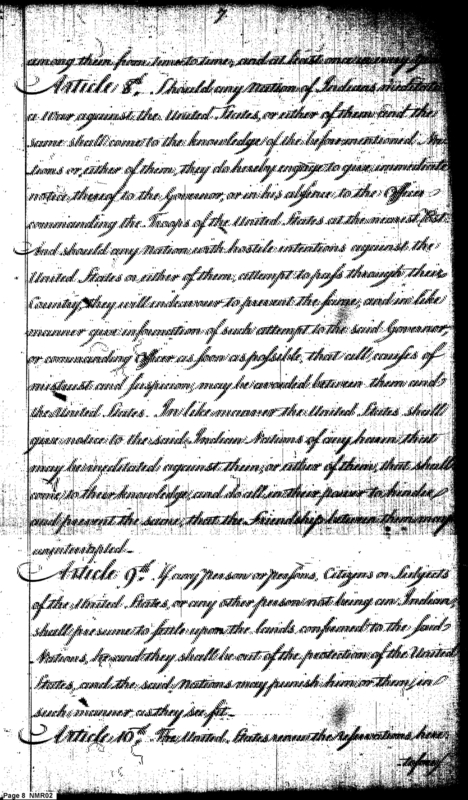 7
among them from time to time, and at least once in every year
Article 8th. Should any Nation of Indians meditate
a War against the United States, or either of them and the
same shall come to the knowledge of the beforementioned Na-
tions or either of them, they do hereby engage to give immediate
notice thereof to the Governor, or in his absence to the Officer
commanding the Troops of the United States at the nearest Post.
And should any Nation with hostile intentions against the
United States or either of them, attempt to pass through their
Country, they will endeavour to prevent the same, and in like
manner give information of such attempt to the said Governor,
or commanding Officer as soon as possible, that all causes of
mistrust and suspicion, may be avoided between them and
the United States. In like manner the United States shall
give notice to the said Indian Nations of any harm that
may be meditated against them, or either of them, that shall
come to their knowledge, and do all in their power to hinder
and prevent the same, that the Friendship between them may
uninterrupted.
Article 9th. If any person or persons, Citizens or Subjects
of the United States, or any other person not being an Indian,
shall presume to settle upon the lands confirmed to the said
Nations, he and they shall be out of the protection of the United
States, and the said Nations may punish him or them, in
such manner as they see fit.
Article 10th. The United States renew the reservations here-
Page 8 NMR02